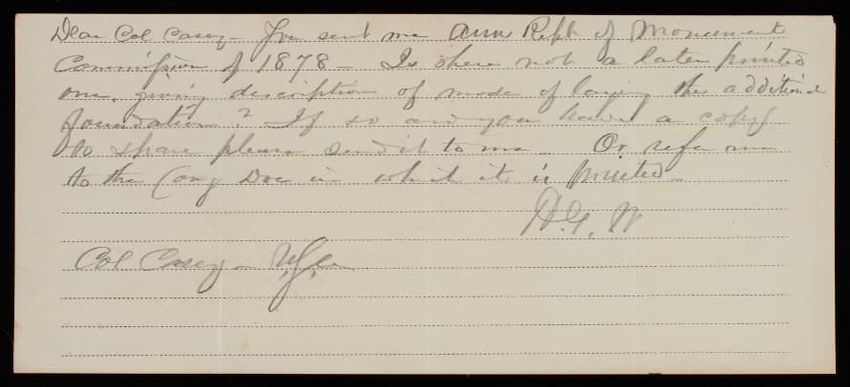 Dear Col Casey - You sent me Ann Rept of Monument
Commission of 1878 - Is there not a later printed
one, giving description of mode of laying the additional
foundation? If so and you have a copy
to spare please send it to me. Or refer me
to the Cong Doc in which it is printed -
H.G. W
Col Casey -